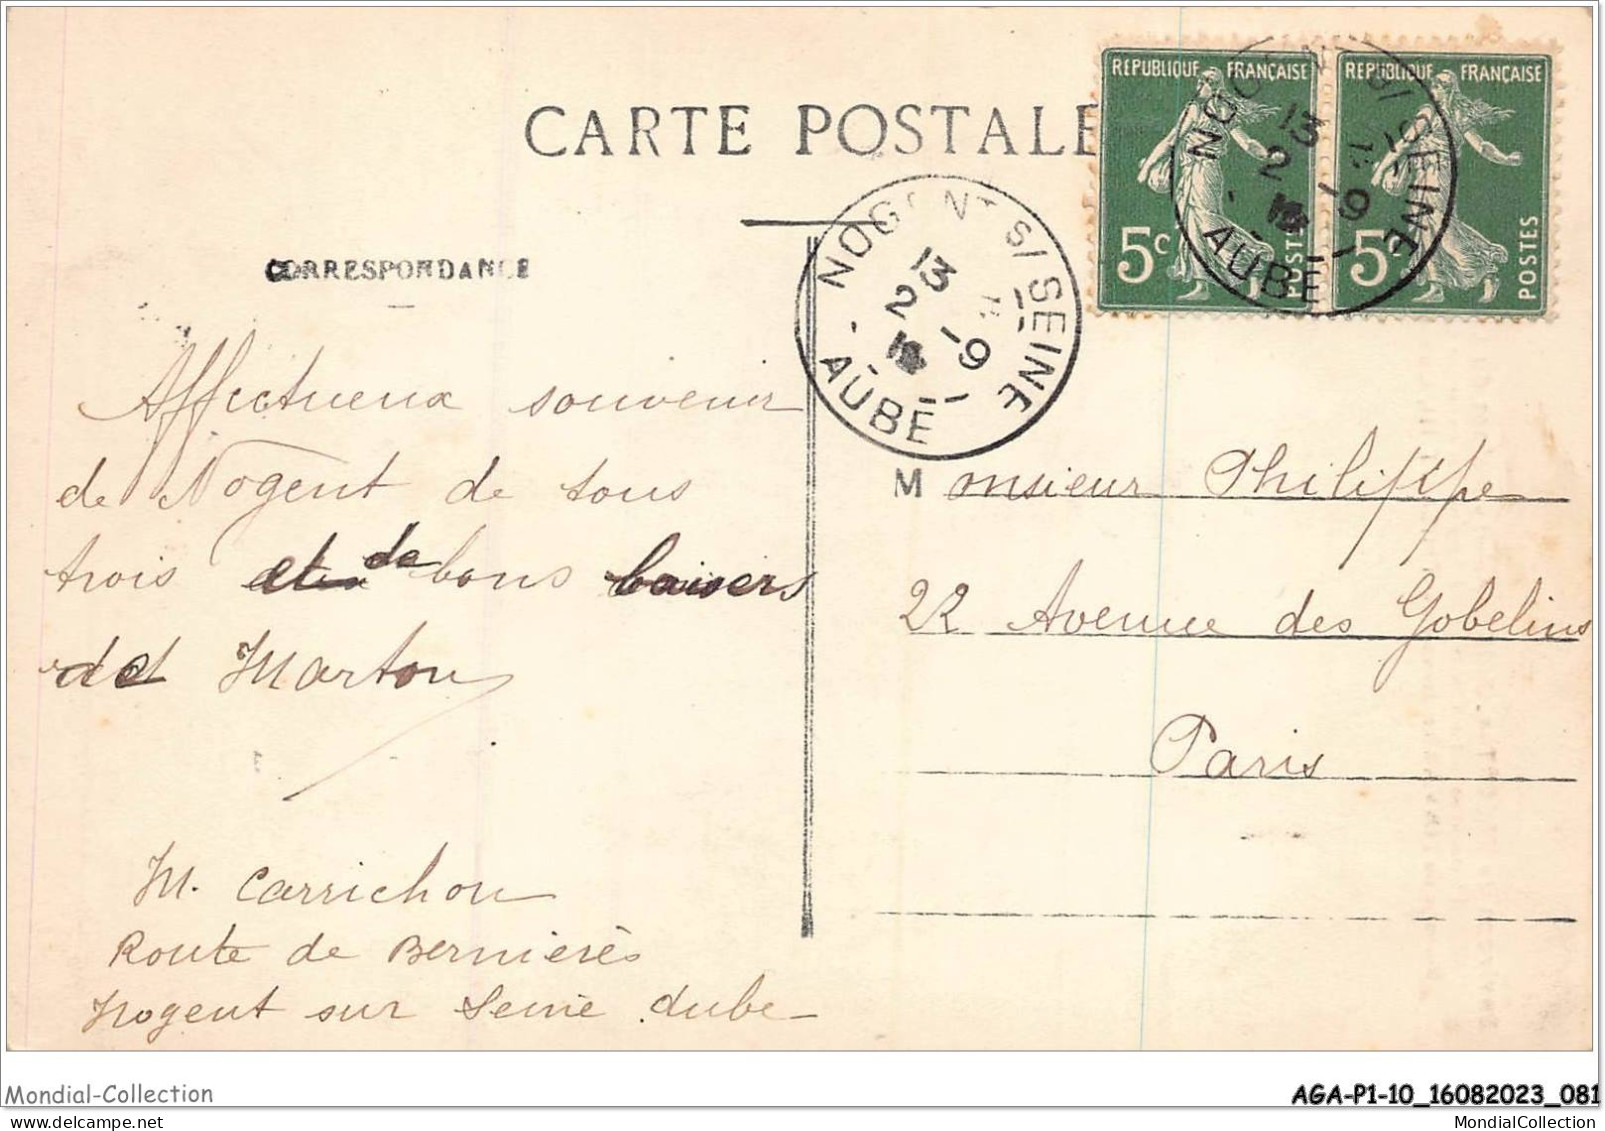 CARTE POSTALE
REPUBLIQUE FRANÇAISE
5c POSTES
REPUBLIQUE FRANÇAISE
5c POSTES
NOGENT S/ SEINE
13 - 9
2
AUBE
NOGENT S/ SEINE
13 - 9
2
AUBE
CORRESPONDANCE
Affectueux souvenir
de Nogent de tous
trois de bons baisers
Marton
M. Carrichon
Route de Bernierès
Nogent sur Seine Aube
Monsieur Philippe
22 Avenue des Gobelins
Paris
Mondial-Collection
AGA-P1-10_16082023_081
MondialCollection